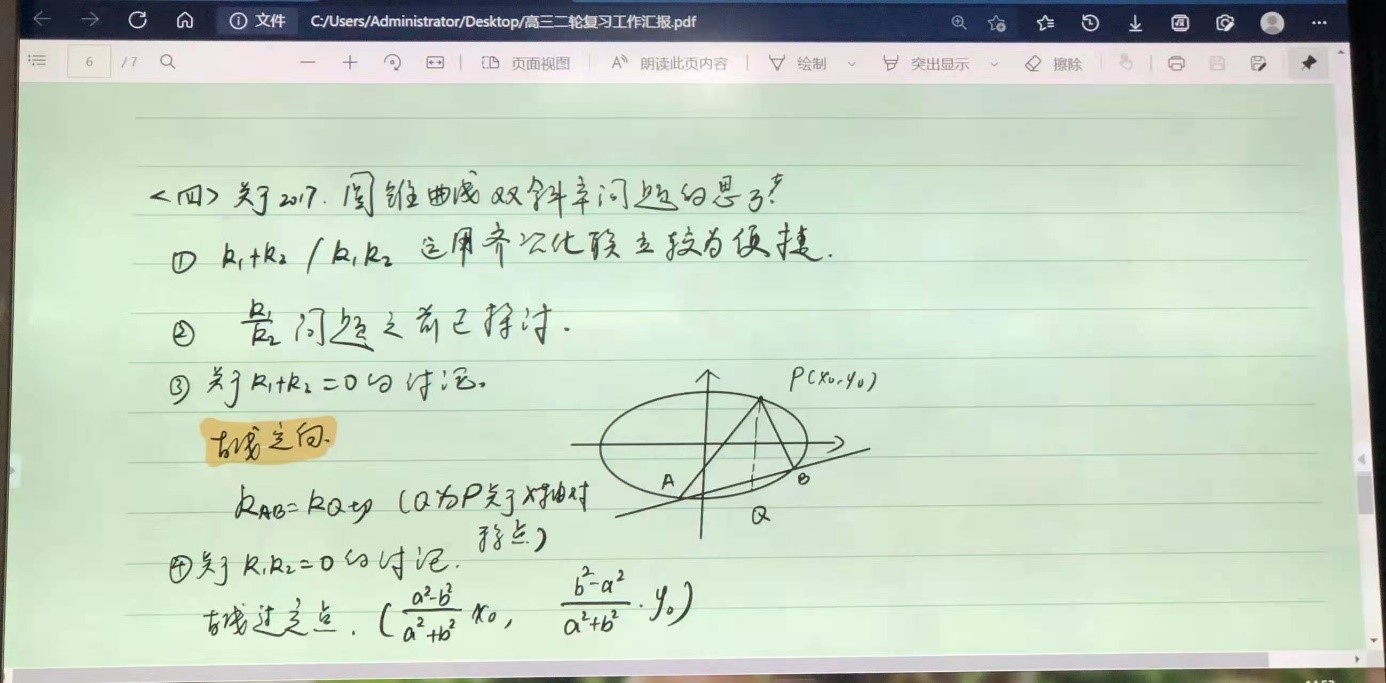 文件 C:/Users/Administrator/Desktop/高三二轮复习工作汇报.pdf
6 / 7 页面视图 朗读此页内容 绘制 突出显示 擦除
<四> 关于2017. 圆锥曲线双斜率问题的思考
① k₁+k₂ / k₁k₂ 运用齐次化联立较为便捷.
② k₁/k₂ 问题之前已探讨.
③ 关于k₁+k₂=0的讨论.
P(x₀,y₀)
直线定向.
A
B
k_AB=k_Q切 (Q为P关于x轴对
称点)
Q
④ 关于k₁k₂=0的讨论.
直线过定点. ( (a²-b²)/(a²+b²) x₀, (b²-a²)/(a²+b²) · y₀)